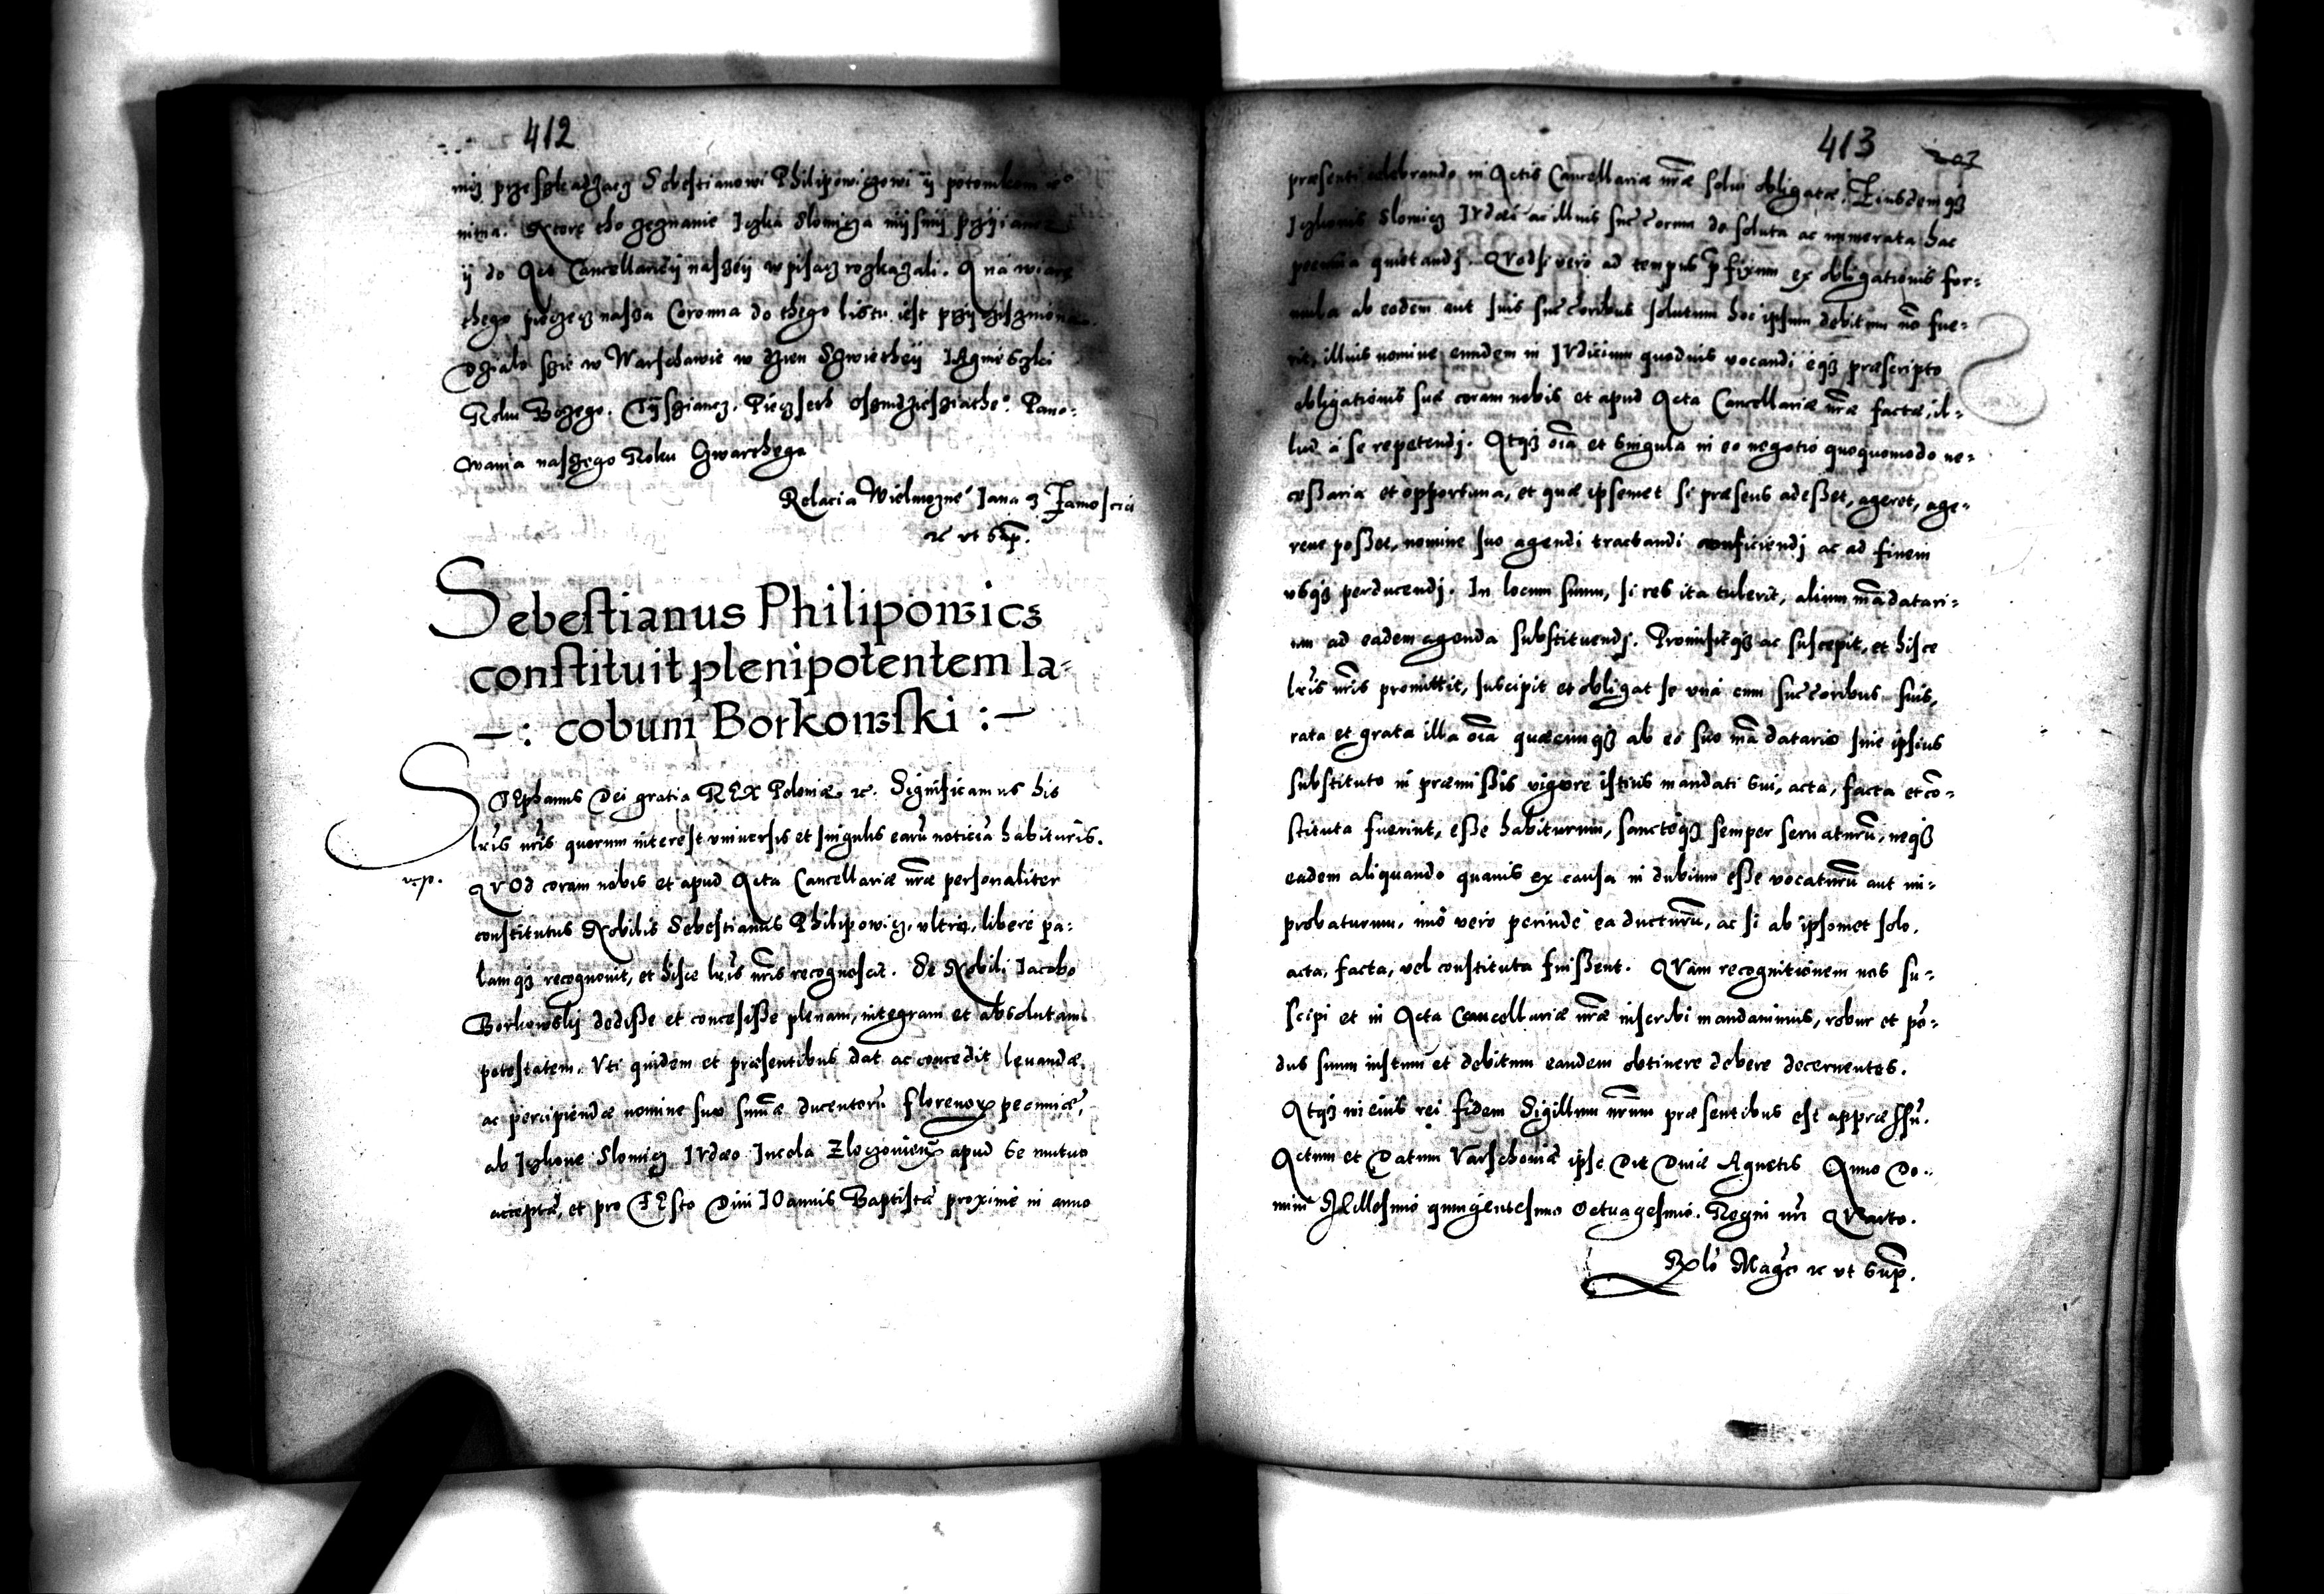 412
mią przeszkadzacz Sebestianowi Philipowiczowi ÿ potomkom
Ktorę tho zeznanie Iczka Slomicza mÿ smÿ
ÿ do Act Cancellarieÿ naszeÿ wpisacz rozkazali. A na
thego pieczęcz nasza Coronna do thego listu iest
Działo szię w Warschawie w dzien Szwiethey Iagnieszki
Roku Bozego. Tÿsziancz. Pięczseth osmdziesziathe°. Pano:
wania naszego Roku Czwarthego
Relacia Wielmozne° Jana z Zamoscia
ꝛc vt sup̄.
Sebestianus Philipowics
constituit plenipotentem Ia-
—: cobum Borkowski :—
STEphanus Dei gratia REX Poloniæ ꝛc. Significamus his
lr̄is nr̄is quorum interest vniuersis et singulis earū noticiā habituris.
QVOd coram nobis et apud Acta Cancellariæ nr̄æ personaliter
constitutus Nobilis Sebestianus Philipowicz, vltro, libere pa:
lamqȝ recognouit, et hisce lr̄is nr̄is recognoscit. Se Nobili Iacobo
Borkowskÿ dedisse et concessisse plenam, integram et absolutam
potestatem. Vti quidem et præsentibus dat ac concedit leuandæ,
ac percipiendæ nomine suo sum̄æ ducentorū florenoꝝ pecuniæ,
ab Iczkone Slomicz IVdæo Incola Zloczouien̄ apud se mutuo
acceptæ, et pro FEsto Diui IOannis Baptistæ proxime in anno
413
præsenti celebrando in Actis Cancellariæ nr̄æ solui obligatæ. Eiusdemqȝ
Iczkonis Slomicz IVdæi ac illius succorum de soluta ac numerata hac
pecunia quietandj. QVodsi vero ad tempus p̄fixum ex obligationis for:
mula ab eodem aut suis succoribus solutum hoc ipsum debitum nō fue:
rit, illius nomine eundem in IVdicium quoduis vocandi eqȝ præscripto
obligationis suæ coram nobis et apud Acta Cancellariæ nr̄æ factæ, il-
lud a se repetendj. Atqȝ oīa et singula in eo negotio quoquomodo ne:
cessaria et opportuna, et quæ ipsemet si præsens adesset, ageret, age:
reue posset, nomine suo agendi tractandi conficiendj ac ad finem
vsqȝ perducendj. In locum suum, si res ita tulerit, alium mādatari:
um ad eadem agenda substituendj. Promisitqȝ ac suscepit, et hisce
lr̄is nr̄is promittit, suscipit et obligat se vna cum succoribus suis,
rata et grata illa oīa quæcunqȝ ab eo suo mādatario siue ipsius
substituto in præmissis vigore istius mandati sui, acta, facta et cō-
stituta fuerint, esse habiturum, sanctéqȝ semper seruaturū, neqȝ
eadem aliquando quauis ex causa in dubium esse vocaturū aut im-
probaturum, imò vero perinde ea ducturū, ac si ab ipsomet solo,
acta, facta, vel constituta fuissent. QVam recognitionem nos su-
scipi et in Acta Cancellariæ nr̄æ inscribi mandauimus, robur et pō-
dus suum iustum et debitum eandem obtinere debere decernentes.
Atqȝ in eius rei fidem Sigillum nr̄um præsentibus est appræssū.
Actum et Datum Varschouiæ ipse Die Diuæ Agnetis Anno Do-
mini Millesimo quingentesimo Octuagesimo. Regni nr̄i QVarto.
Rlō Magci ꝛc vt sup̄.